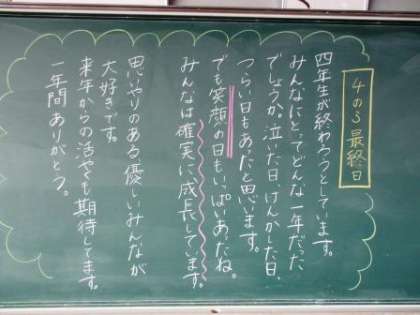 4の3 最終日
四年生が終わろうとしています。
みんなにとってどんな一年だった
でしょうか。泣いた日、けんかした日、
つらい日もあったと思います。
でも笑顔の日もいっぱいあったね。
みんなは確実に成長しています。
思いやりのある優しいみんなが
大好きです。
来年からの活やくも期待してます。
一年間ありがとう。